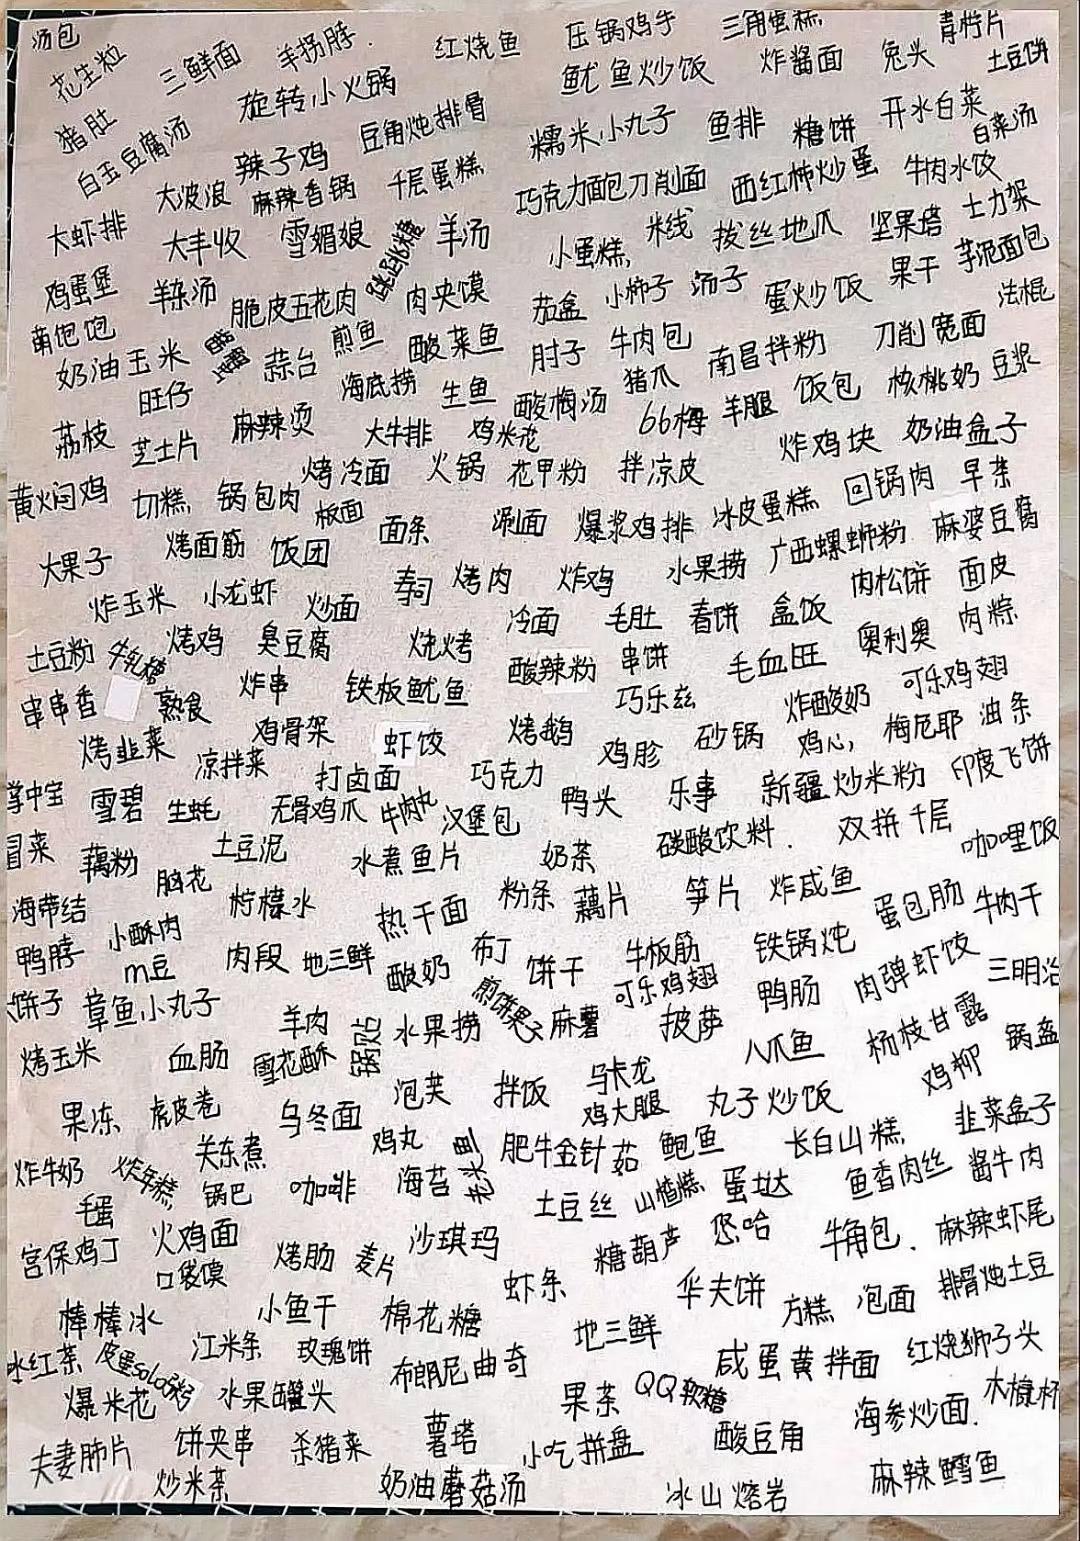 汤包 花生粒 三鲜面 羊拐脖 红烧鱼 压锅鸡手 三角蛋糕 青柠片
旋转小火锅 鱿鱼炒饭 炸酱面 兔头 土豆饼
猪肚 白玉豆腐汤 辣子鸡 豆角炖排骨 糯米小丸子 鱼排 糖饼 开水白菜 白菜汤
大波浪 麻辣香锅 千层蛋糕 巧克力面包 刀削面 西红柿炒蛋 牛肉水饺
大虾排 大丰收 雪媚娘 跳跳糖 羊汤 小蛋糕 米线 拔丝地瓜 坚果塔 士力架
鸡蛋堡 羊杂汤 脆皮五花肉 肉夹馍 茄盒 小柿子 汤子 蛋炒饭 果干 芋泥面包
萌饱饱 奶油玉米 蒜台 煎鱼 酸菜鱼 肘子 牛肉包 南昌拌粉 刀削宽面 法棍
旺仔 海底捞 生鱼 酸梅汤 猪爪 66梅 羊腿 饭包 核桃奶 豆浆
荔枝 芝士片 麻辣烫 大牛排 鸡米花 炸鸡块 奶油盒子
黄焖鸡 切糕 锅包肉 烤冷面 火锅 花甲粉 拌凉皮 冰皮蛋糕 回锅肉 早茶
大果子 烤面筋 饭团 板面 面条 涮面 爆浆鸡排 广西螺蛳粉 麻婆豆腐
炸玉米 小龙虾 炒面 寿司 烤肉 炸鸡 水果捞 肉松饼 面皮
土豆粉 牛轧糖 烤鸡 臭豆腐 烧烤 冷面 毛肚 春饼 盒饭 奥利奥 肉粽
串串香 熟食 炸串 铁板鱿鱼 酸辣粉 串饼 毛血旺 可乐鸡翅
烤韭菜 凉拌菜 鸡骨架 虾饺 烤鹅 巧乐兹 鸡胗 砂锅 炸酸奶 鸡心 梅尼耶 油条
掌中宝 雪碧 生蚝 打卤面 无骨鸡爪 牛肉丸 汉堡包 巧克力 鸭头 乐事 新疆炒米粉 印度飞饼
冒菜 藕粉 脑花 土豆泥 水煮鱼片 奶茶 碳酸饮料 双拼千层 咖哩饭
海带结 小酥肉 柠檬水 热干面 粉条 藕片 笋片 炸咸鱼 蛋包肠 牛肉干
鸭脖 m豆 肉段 地三鲜 酸奶 布丁 饼干 牛板筋 铁锅炖 肉弹虾饺 三明治
饼子 章鱼小丸子 羊肉 锅贴 水果捞 煎饼果子 麻薯 可乐鸡翅 披萨 鸭肠 杨枝甘露
烤玉米 血肠 雪花酥 泡芙 拌饭 马卡龙 八爪鱼 鸡柳 锅盔
果冻 虎皮卷 乌冬面 鸡丸 鸡大腿 丸子炒饭 韭菜盒子
炸牛奶 炸年糕 关东煮 锅巴 咖啡 海苔 肥牛金针菇 鲍鱼 长白山糕 鱼香肉丝 酱牛肉
毛蛋 火鸡面 土豆丝 山楂糕 蛋挞
宫保鸡丁 口袋馍 烤肠 麦片 沙琪玛 糖葫芦 悠哈 牛角包 麻辣虾尾
棒棒冰 小鱼干 棉花糖 虾条 华夫饼 方糕 泡面 排骨炖土豆
冰红茶 皮蛋solo粥 江米条 玫瑰饼 布朗尼曲奇 地三鲜 咸蛋黄拌面 红烧狮子头
爆米花 水果罐头 果茶 QQ软糖 海参炒面
夫妻肺片 饼夹串 杀猪菜 薯塔 小吃拼盘 酸豆角
炒米茶 奶油蘑菇汤 冰山熔岩 麻辣鳕鱼